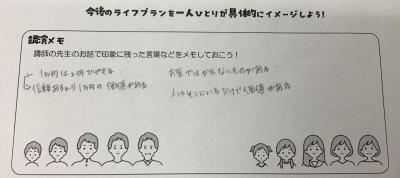 今後のライフプランを一人ひとりが具体的にイメージしよう！
講演メモ
講師の先生のお話で印象に残った言葉などをメモしておこう！
1万円は2円でできる
信頼があるから1万円の価値がある
お金ではかえないものがある
人はそこにいるだけで価値がある